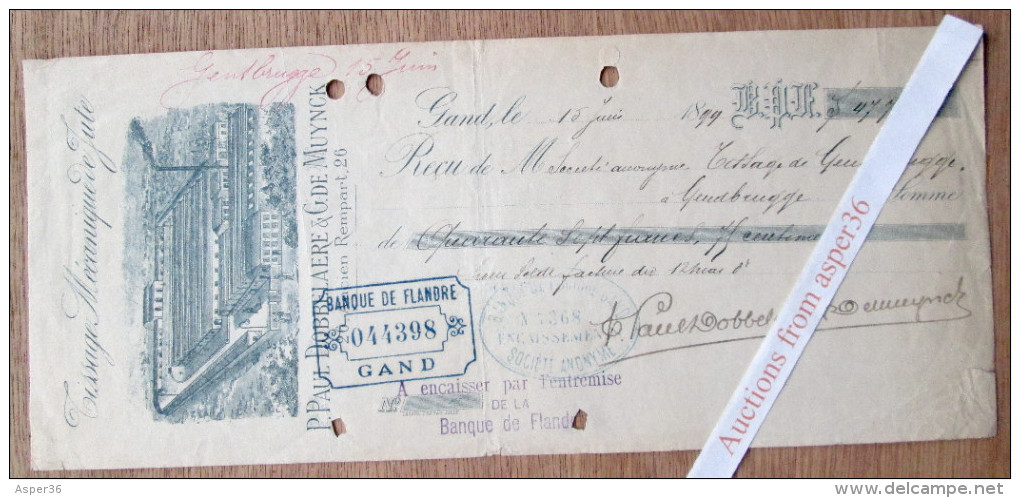 Gentbrugge 15 Juin
Tissage Mécanique de Jute
P. PAUL DOBBELAERE & G. DE MUYNCK
Rempart, 26
Gand, le 15 Juin 1899 B.P.F. 47,7
Reçu de M Société anonyme Tissage de Gendbrugge
à Gendbrugge Somme
de Quarante Sept francs, 75 centimes
Pour Solde facture du 12 Mai
BANQUE DE FLANDRE
044398
GAND
ENCAISSEMENT
SOCIÉTÉ ANONYME
P. Paul Dobbel Demuynck
A encaisser par l'entremise
DE LA
Banque de Fland
No
Auctions from asper36
Asper36
www.delcampe.net